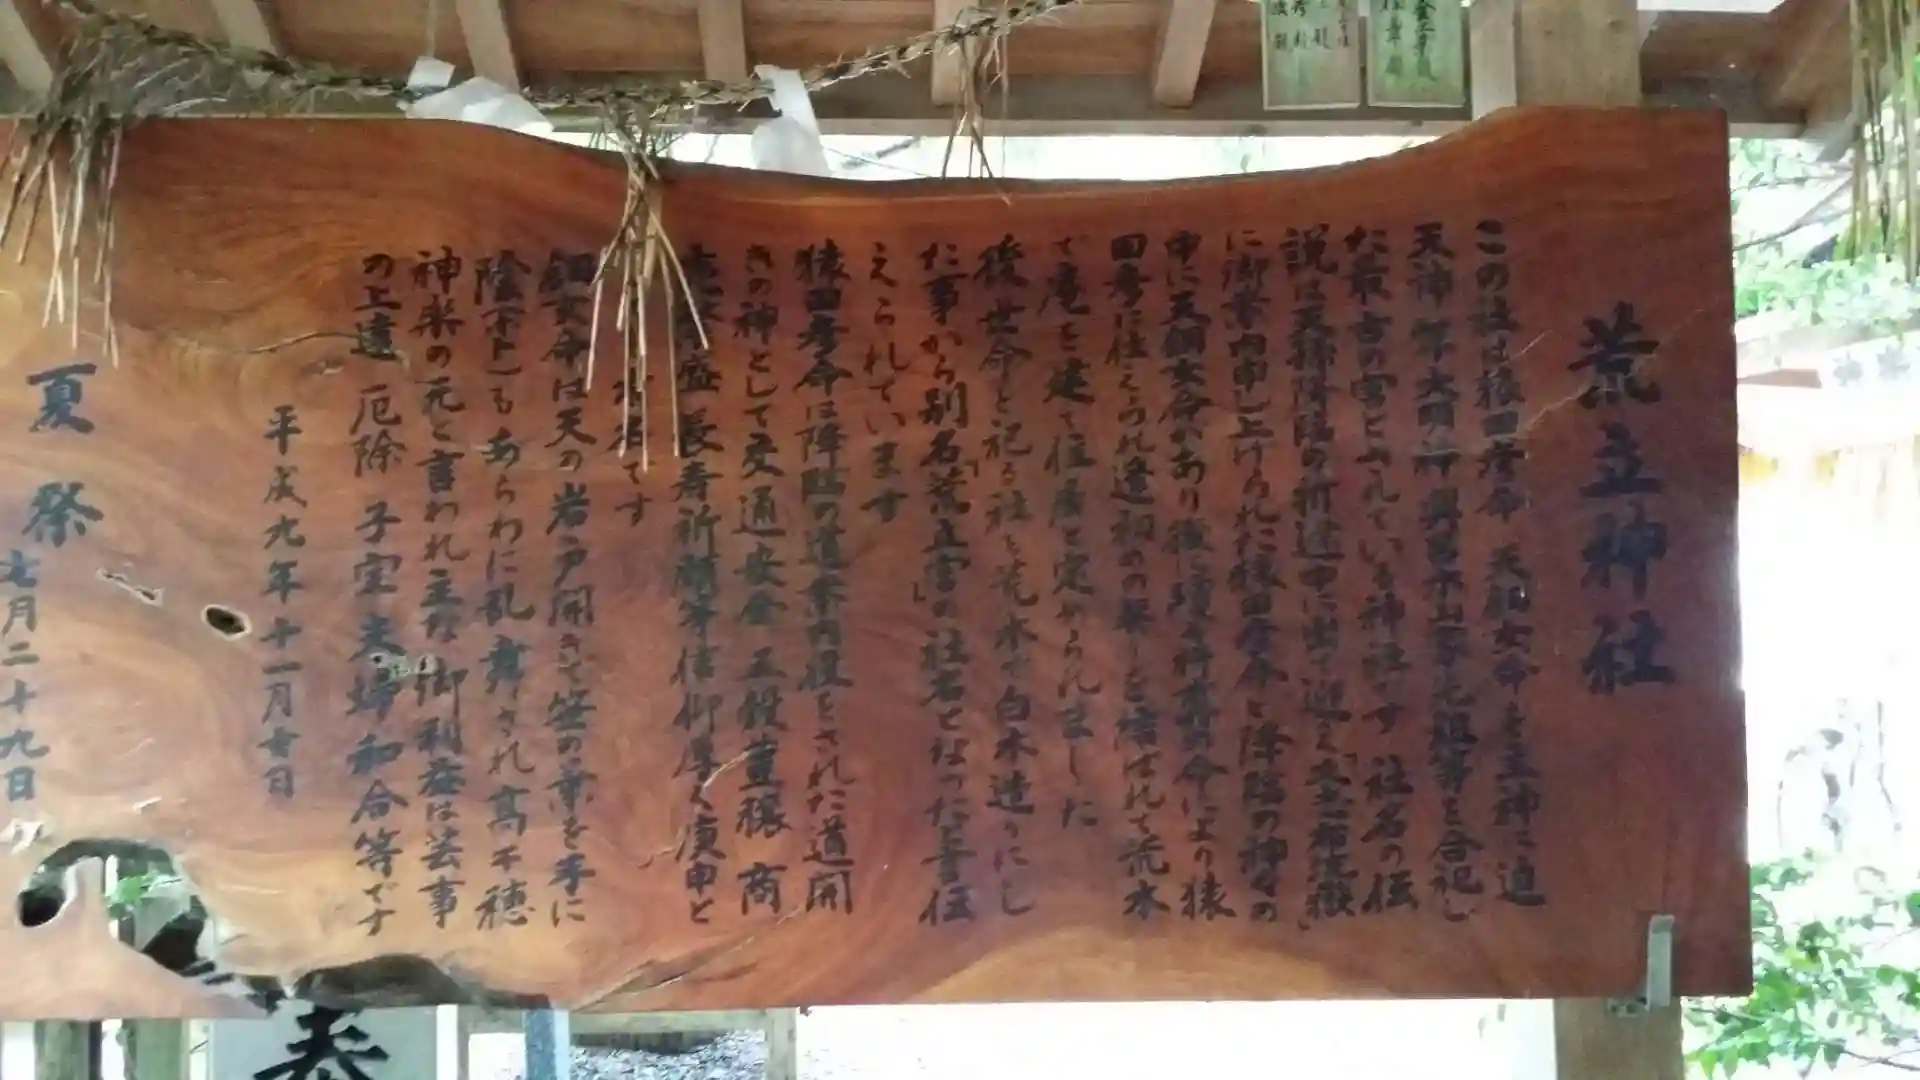 荒立神社
この社は猿田彦命 天鈿女命を主神に迫
天神 年大明神 興
た最古の宮と
れている神社です 社名の伝
説は天孫降臨の折途中に出て迎え
に御案内申し上げられた猿田彦命と降臨の神々の
中に天鈿女命があり後に瓊々杵尊の命により猿
田彦に仕えられ逢初めの契りを結ばれて荒木
で庵を建て住居と定められました
後世命を祀る社も荒木で白木造りにし
た事から別名「荒立宮」の社名となったと言伝
えられています
猿田彦命は降臨の道案内役をされた道開
きの神として交通安全 五穀豊穣 商
盛 長寿祈願等信仰厚く庚申と
名です
鈿女命は天の岩戸開きで笹の葉を手に
陰下上もあらわに乱舞され高千穂
神楽の元と言われ主な御利益は芸事
の上達 厄除 子宝 夫婦和合等です
平成九年十一月廿日
夏祭
七月二十九日